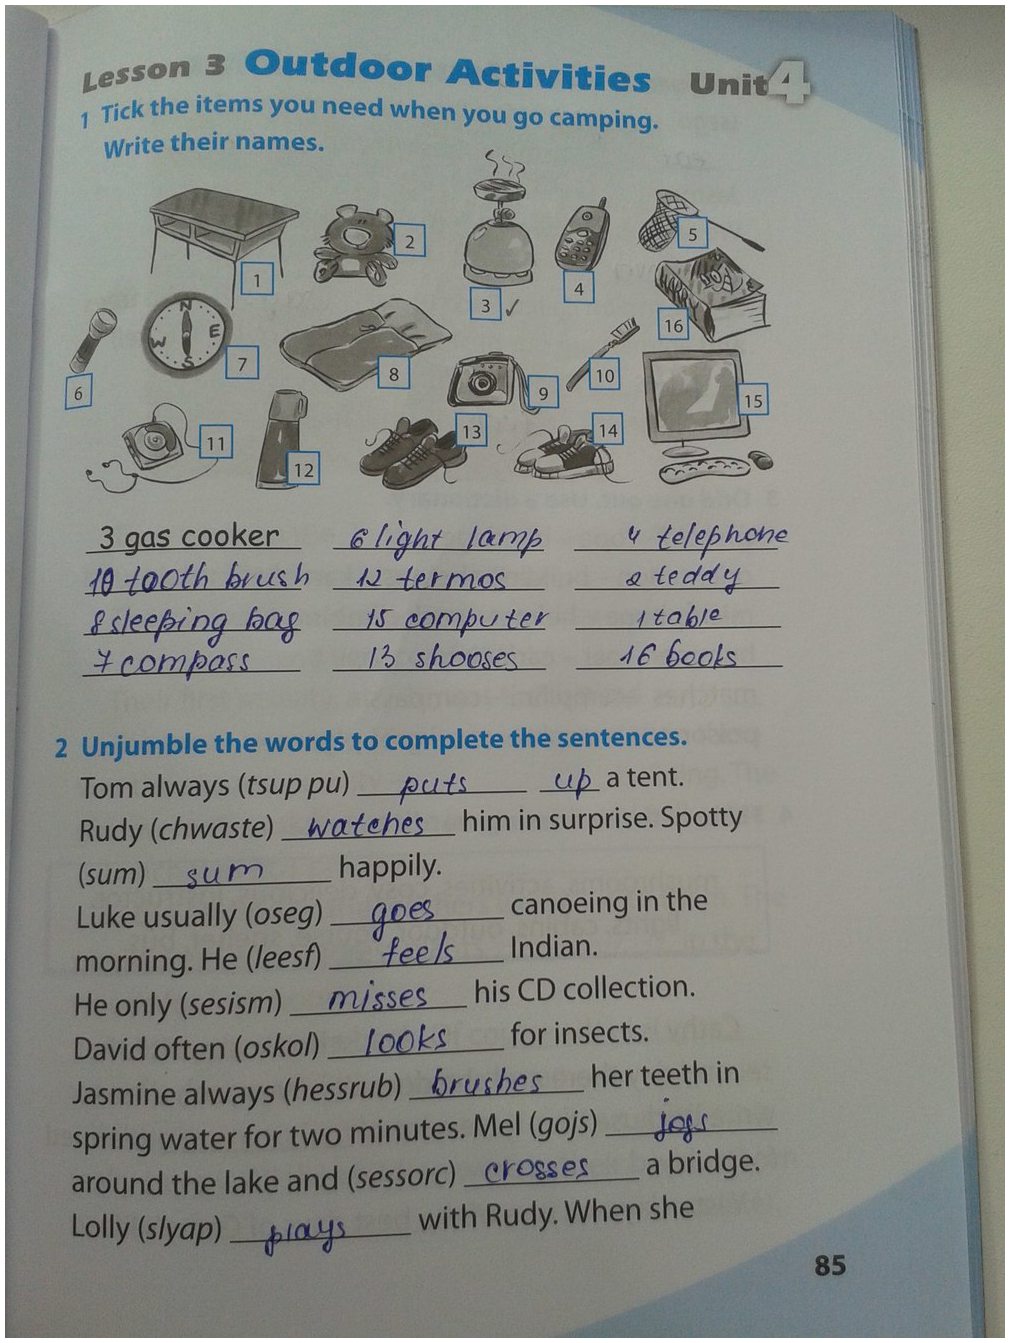 Lesson 3 Outdoor Activities Unit 4
1 Tick the items you need when you go camping.
Write their names.
1
2
3 ✓
4
5
6
7
8
9
10
11
12
13
14
15
16
N
E
S
W
3 gas cooker 6 light lamp 4 telephone
10 tooth brush 12 termos 2 teddy
8 sleeping bag 15 computer 1 table
7 compass 13 shooses 16 books
2 Unjumble the words to complete the sentences.
Tom always (tsup pu) puts up a tent.
Rudy (chwaste) watches him in surprise. Spotty
(sum) sum happily.
Luke usually (oseg) goes canoeing in the
morning. He (leesf) feels Indian.
He only (sesism) misses his CD collection.
David often (oskol) looks for insects.
Jasmine always (hessrub) brushes her teeth in
spring water for two minutes. Mel (gojs) jogs
around the lake and (sessorc) crosses a bridge.
Lolly (slyap) plays with Rudy. When she
85